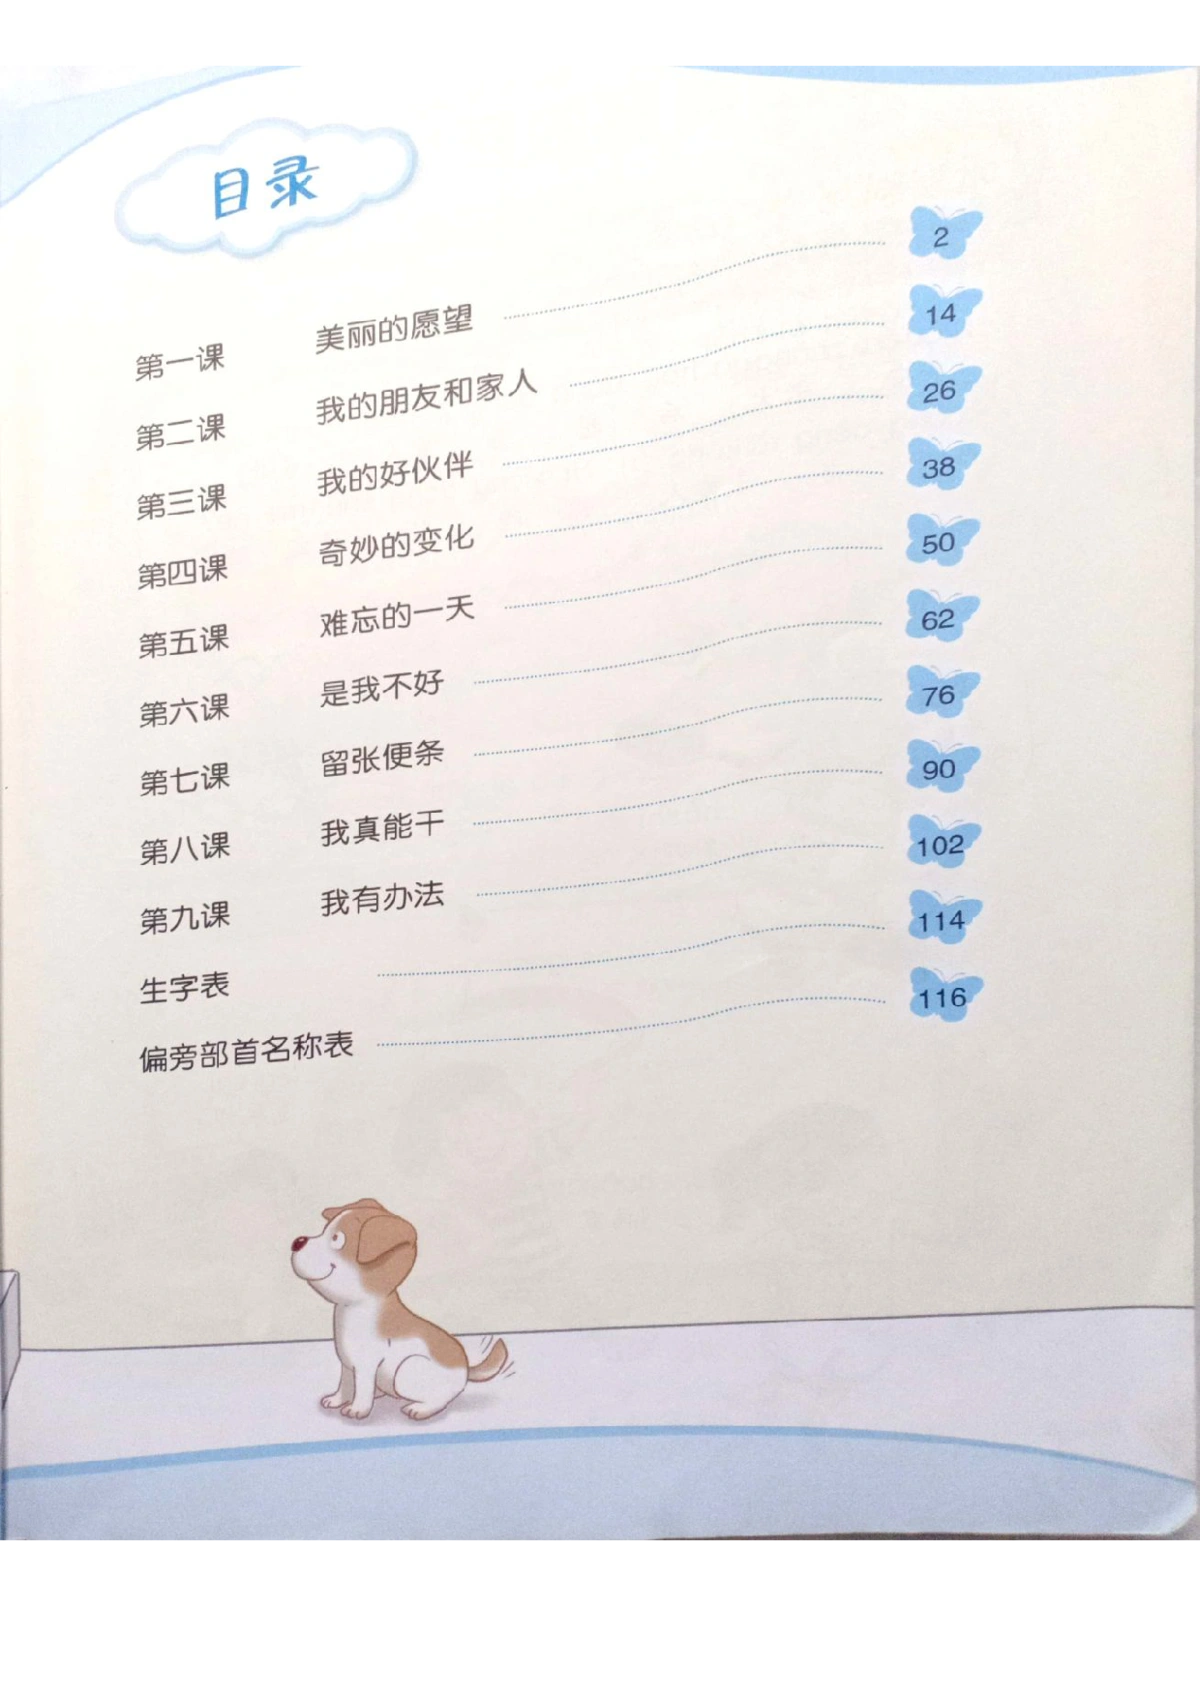 目录
第一课 美丽的愿望 2
第二课 我的朋友和家人 14
第三课 我的好伙伴 26
第四课 奇妙的变化 38
第五课 难忘的一天 50
第六课 是我不好 62
第七课 留张便条 76
第八课 我真能干 90
第九课 我有办法 102
生字表 114
偏旁部首名称表 116